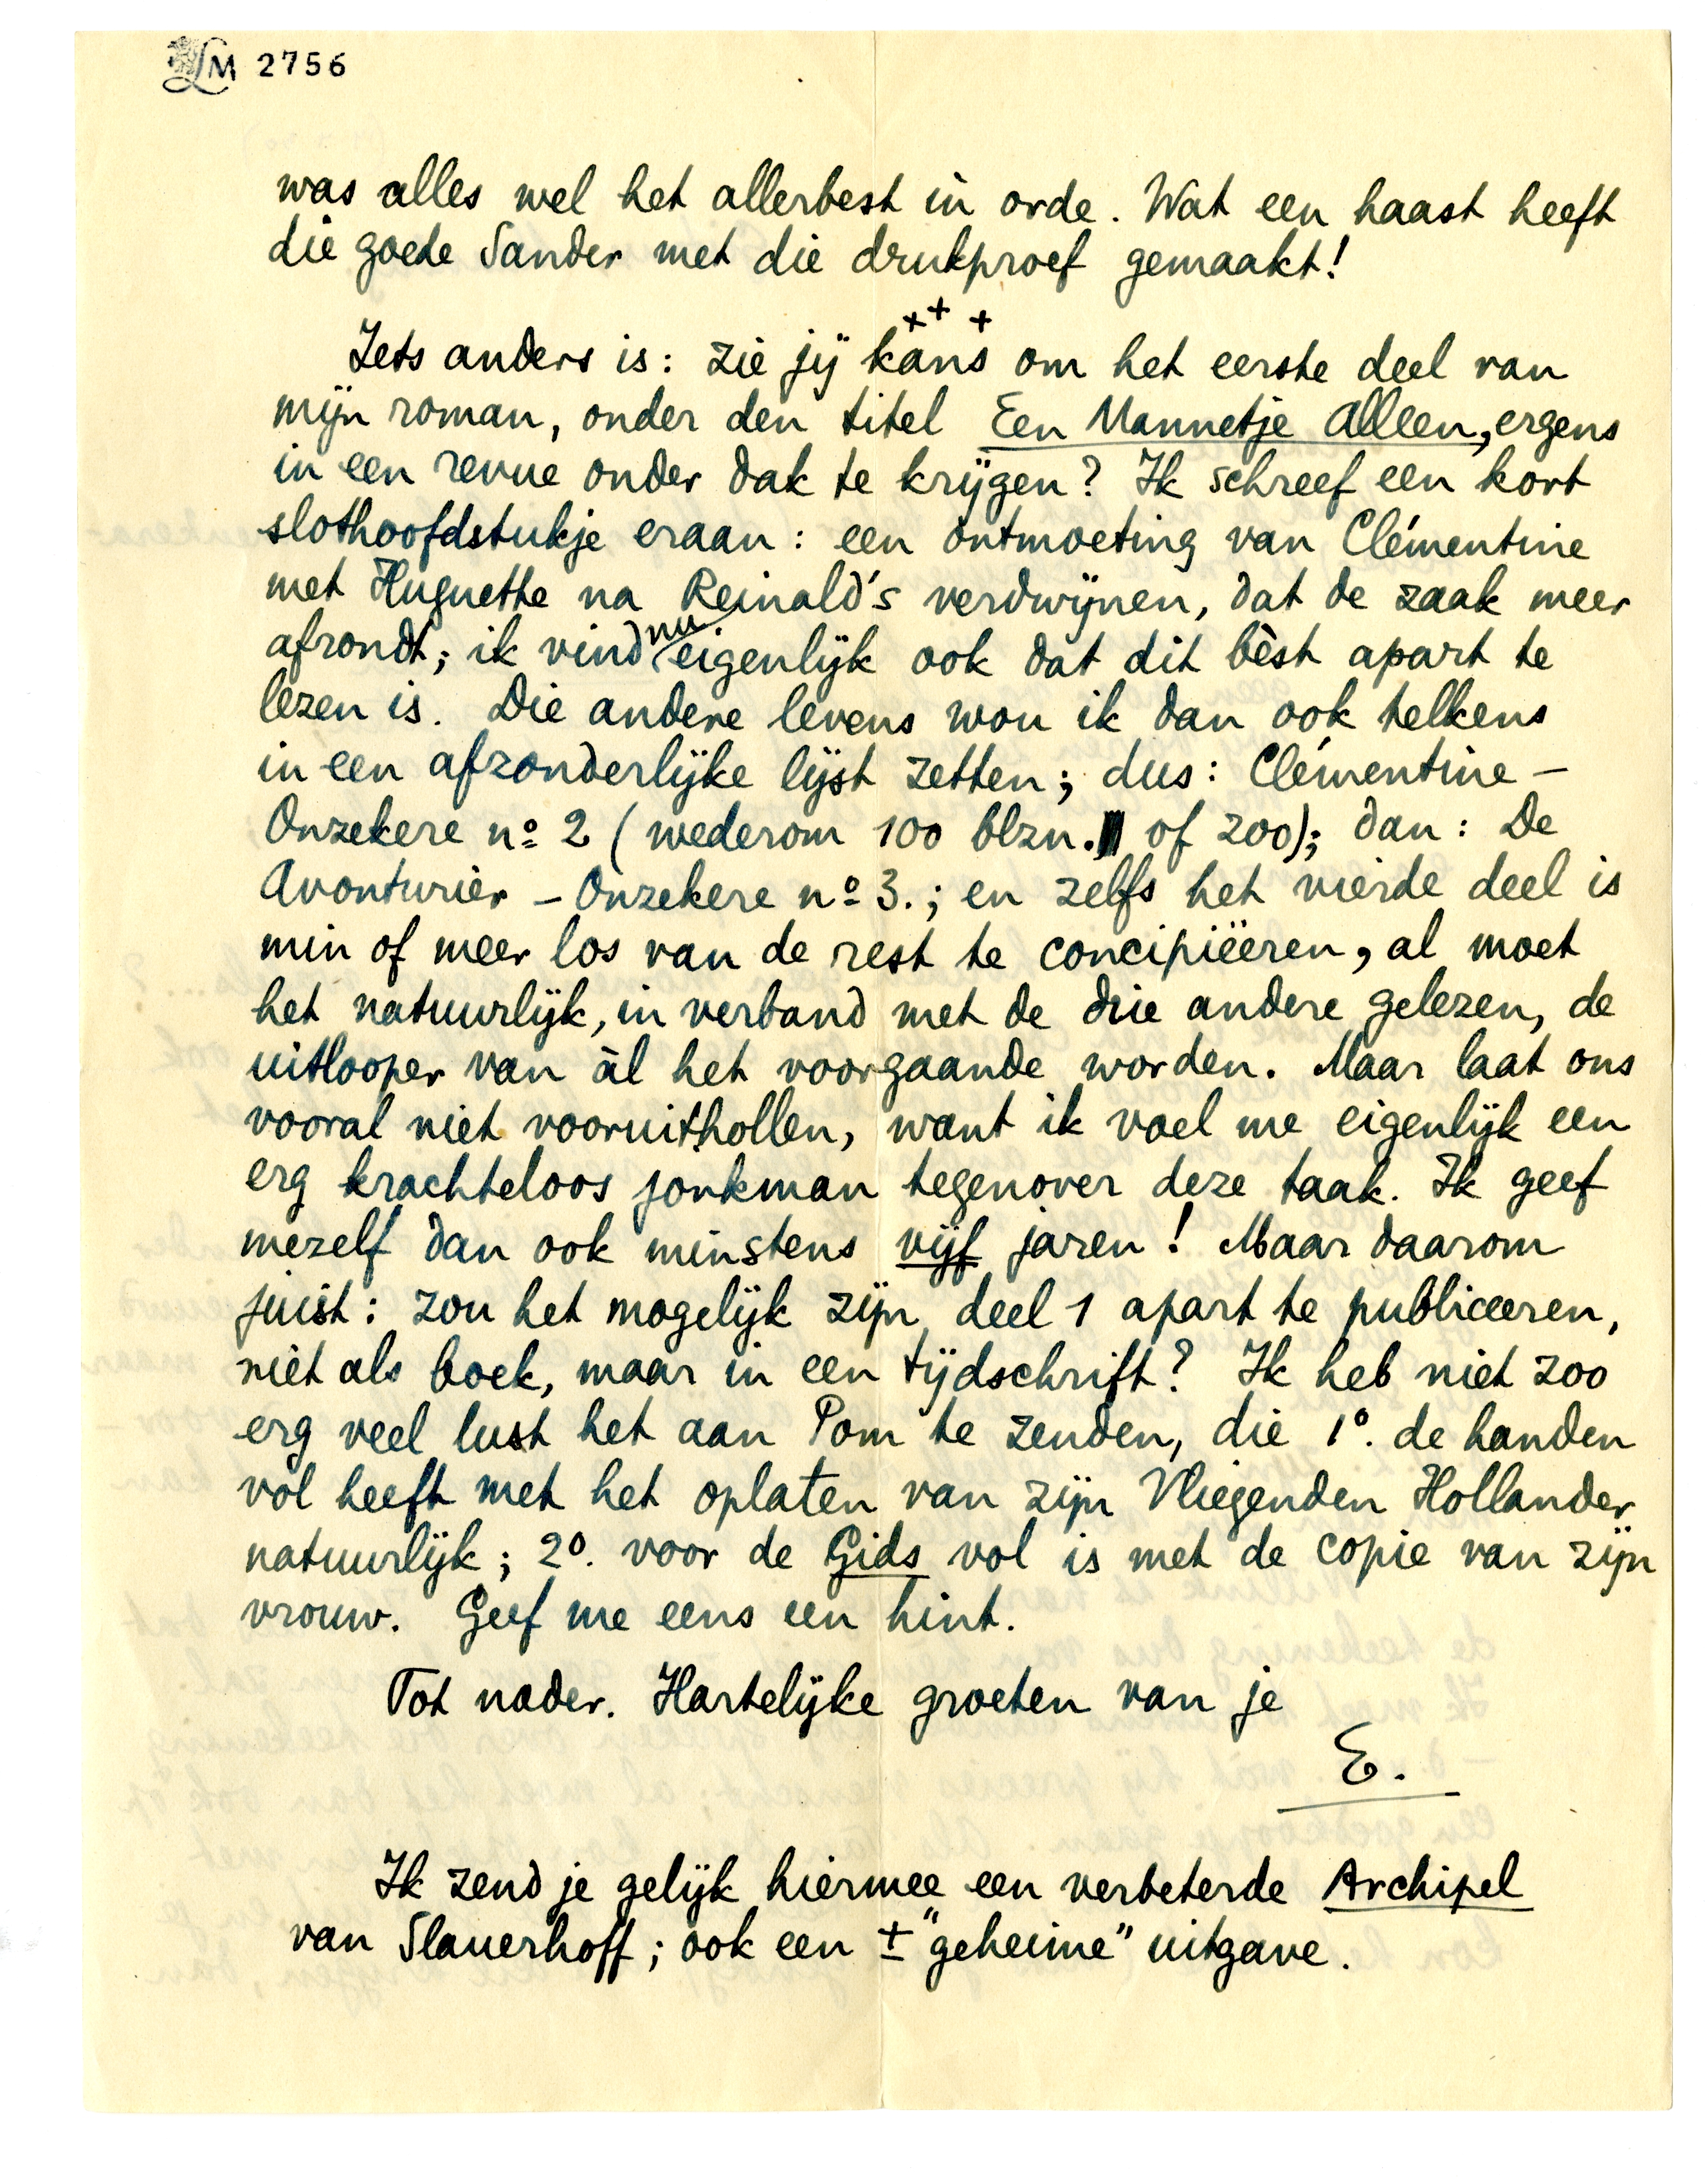 LM 2756
was alles wel het allerbest in orde. Wat een haast heeft
die goede Sander met die drukproef gemaakt!
+ + +
Iets anders is: zie jij kans om het eerste deel van
mijn roman, onder den titel Een Mannetje Alleen, ergens
in een revue onder dak te krijgen? Ik schreef een kort
slothoofdstukje eraan: een ontmoeting van Clémentine
met Huguette na Reinald's verdwijnen, dat de zaak meer
afrondt; ik vind nu eigenlijk ook dat dit bèst apart te
lezen is. Die andere levens wou ik dan ook telkens
in een afzonderlijke lijst zetten; dus: Clémentine –
Onzekere nº 2 (wederom 100 blzn. of 200); dan: De
Avonturier – Onzekere nº 3.; en zelfs het vierde deel is
min of meer los van de rest te concipiëeren, al moet
het natuurlijk, in verband met de drie andere gelezen, de
uitlooper van àl het voorgaande worden. Maar laat ons
vooral niet vooruithollen, want ik voel me eigenlijk een
erg krachteloos jonkman tegenover deze taak. Ik geef
mezelf dan ook minstens vijf jaren! Maar daarom
juist: zou het mogelijk zijn deel 1 apart te publiceeren,
niet als boek, maar in een tijdschrift? Ik heb niet zoo
erg veel lust het aan Pom te zenden, die 1º. de handen
vol heeft met het oplaten van zijn Vliegenden Hollander
natuurlijk; 2º. voor de Gids vol is met de copie van zijn
vrouw. Geef me eens een hint.
Tot nader. Hartelijke groeten van je
E.
Ik zend je gelijk hiermee een verbeterde Archipel
van Slauerhoff; ook een ± "geheime" uitgave.